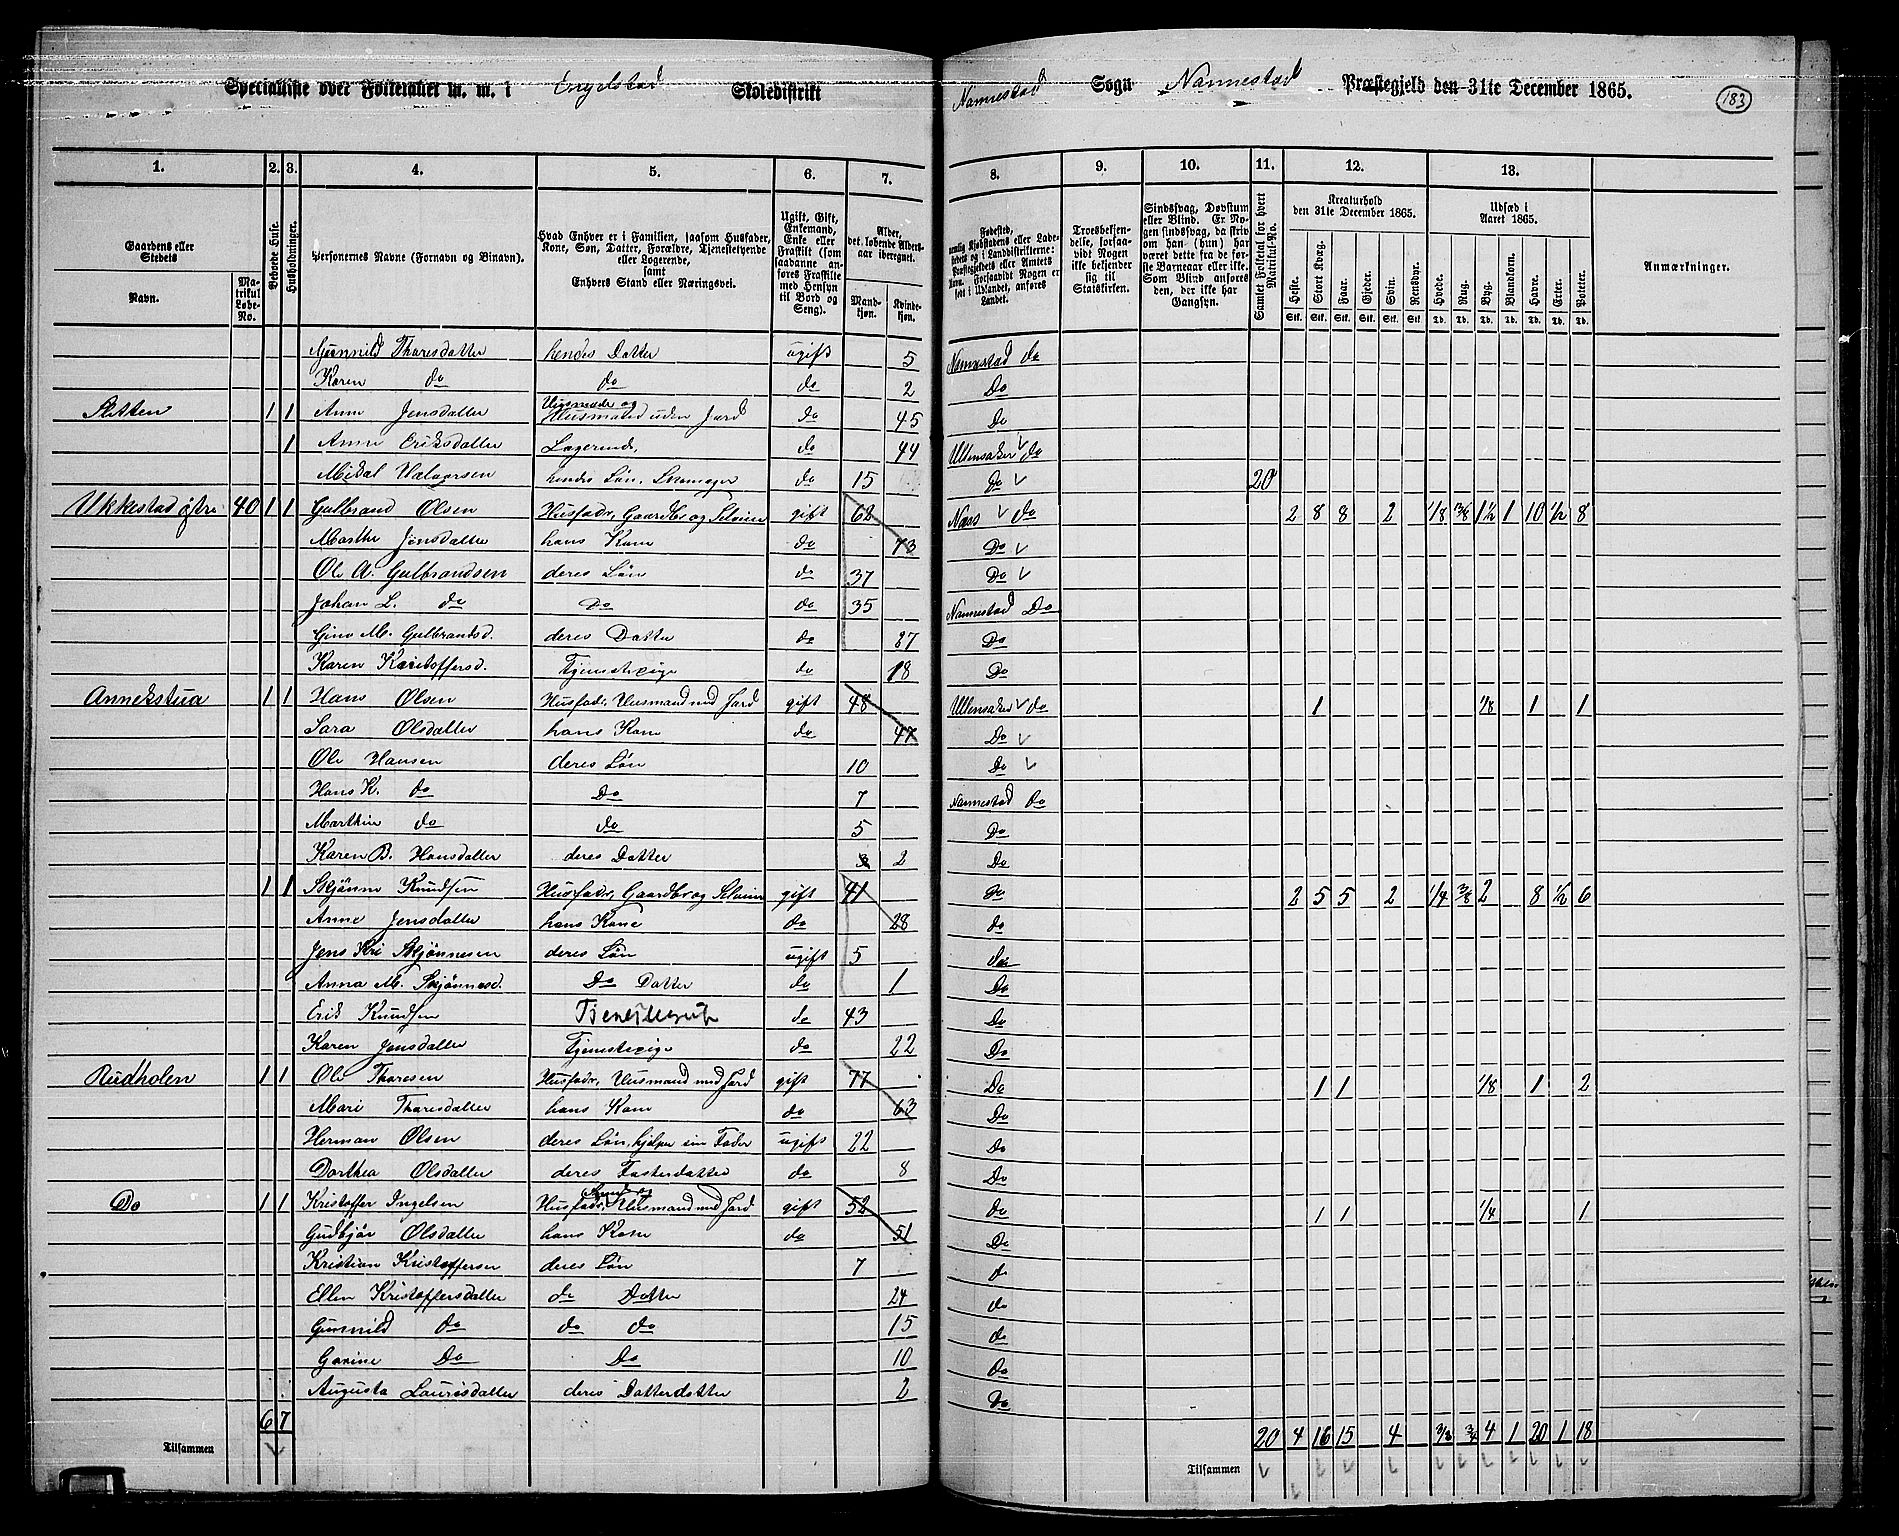 Specialliste over Folketallet m. m. i Engelstad Skoledistrikt Nannestad Sogn Nannestad Præstegjeld den 31te December 1865.
183
1. 2. 3. 4. 5. 6. 7. 8. 9. 10. 11. 12. 13.
Gaardens eller Stedets Navn.
Matrikul Løbe-No.
Beboede Huse.
Husholdninger.
Personernes Navne (Fornavn og Binavn).
Hvad Enhver er i Familien, saasom Husfader, Kone, Søn, Datter, Forældre, Tjenestetyende eller Logerende, samt Enhvers Stand eller Næringsvei.
Ugift, Gift, Enkemand, Enke eller Fraskilt (som saadanne anføres Fraskilte med Hensyn til Bord og Seng).
Alder, det løbende Aldersaar iberegnet.
Mandkjøn. Kvindekjøn.
Fødested,
Troesbekjendelse, forsaavidt Nogen ikke bekjender sig til Statskirken.
Sindssvag, Døvstum eller Blind. Er Nogen sindssvag, da skriv om han (hun) har været dette fra de første Barneaar eller ikke. Som Blind anføres den, der ikke har Gangsyn.
Samlet Folketal for hvert Matrikul-No.
Kreaturhold den 31te December 1865.
Heste. Stort Kvæg. Faar. Gjeder. Svin. Rensdyr.
Udsæd i Aaret 1865.
Hvede. Rug. Byg. Blandkorn. Havre. Erter. Poteter.
Anmærkninger.
Gunnild Tharesdatter hendes Datter ugift 5 Nannestad do
Karen do do do 2 Do
1 1 Anne Jensdatter Husmand uden Jord do 45 Do
1 Anne Eriksdatter Logerende, do 44 Ullensaker do
hendes Søn, do 15 Do 20
Ukkestad østre 40 1 1 Gulbrand Olsen Husfadr, Gaardbr og Selveier gift 62 Næss do 2 8 8 2 1/8 3/8 1½ 1 10 ½ 8
Marthe Jonsdatter hans Kone do 73 Do
Ole A. Gulbrandsen deres Søn do 37 Do
Johan L. do Do do 35 Nannestad Do
Gulbrandsd. deres Datter do 27 Do
Karen Kristoffersd. Tjenestepige do 18 Do
Annekstua 1 1 Hans Olsen Husfadr, Husmand med Jord gift 48 Ullensaker do 1 1/8 1 1
Sara Olsdatter hans Kone do 47 Do
Ole Hansen deres Søn 10 Do
Hans K. do Do 7 Nannestad do
Marthin do do 5 Do
Karen B. Hansdatter deres Datter 2 Do
1 1 Skjønne Knudsen Husfadr, Gaardbr og Selveier gift 41 Do 2 5 5 2 1/4 3/8 2 8 ½ 6
Anne Jensdatter hans Kone do 28 do
Jens Kri Skjønnesen deres Søn ugift 5 do
Anna M. Skjønnesd. Do Datter do 1 Do
Erik Knudsen do 43 Do
Karen Jensdatter Tjenestepige do 22 Do
Rudholen 1 1 Ole Tharesen Husfadr, Husmand med Jord gift 77 Do 1 1 1/8 1 2
Mari Tharesdatter hans Kone do 63 Do
Herman Olsen deres Søn, hjelper sin Fader ugift 22 Do
Dorthea Olsdatter deres Fosterdatter do 8 Do
Do 1 1 Kristoffer Ingelsen Husfadr, Husmand med Jord gift 52 do 1 1 1/4 1
Gudbjør Olsdatter hans Kone do 51 Do
Kristian Kristoffersen deres Søn 7 do
Ellen Kristoffersdatter do Datter 24 do
Gunnild do do do 15 do
Gorine Do Do 10 Do
Augusta Laurisdatter deres Datterdatter 2 Do
6 7
Tilsammen
Tilsammen 20 4 16 15 4 3/8 3/4 4 1 20 1 18